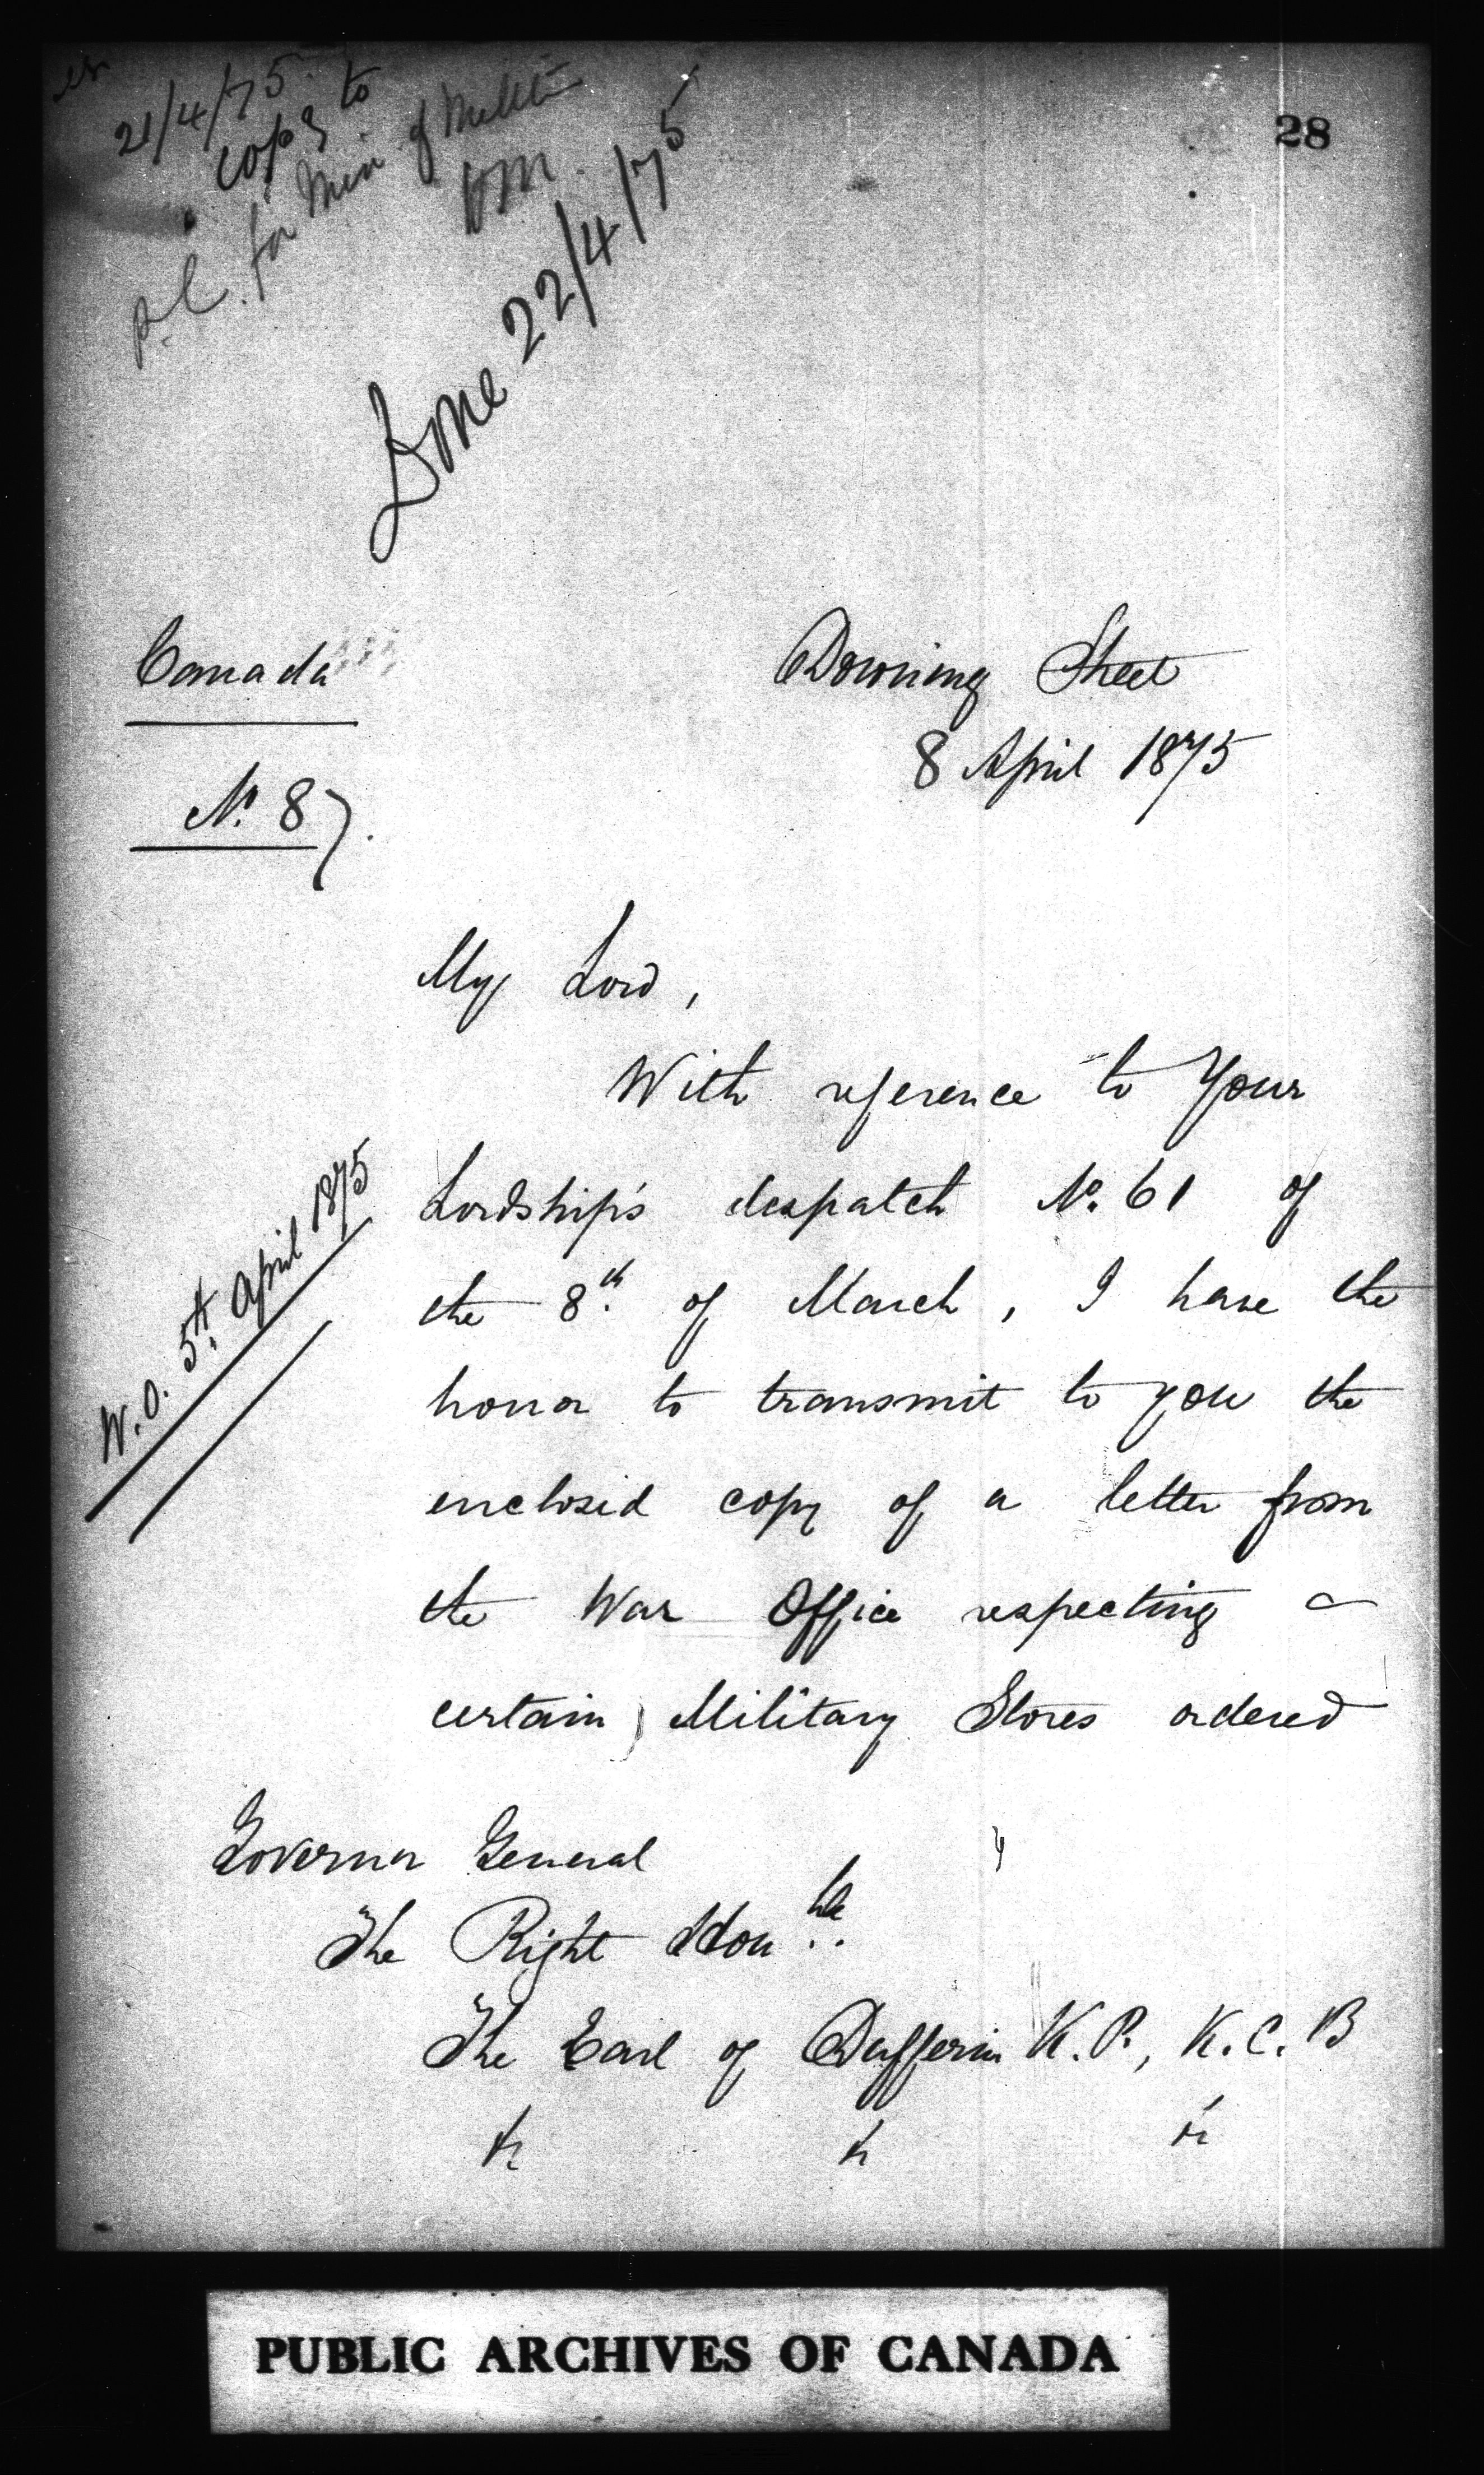 21/4/75
copy to
P.C. for Min. of Militia
Done 22/4/75
28
Canada
No. 87.
Downing Street
8 April 1875
My Lord,
With reference to Your
Lordship's despatch No. 61 of
the 8th. of March, I have the
W.O. 5th. April 1875
honor to transmit to you the
enclosed copy of a letter from
the War Office respecting
certain Military Stores ordered
Governor General
The Right Honble.
The Earl of Dufferin K.P., K.C.B
&c &c &c
PUBLIC ARCHIVES OF CANADA